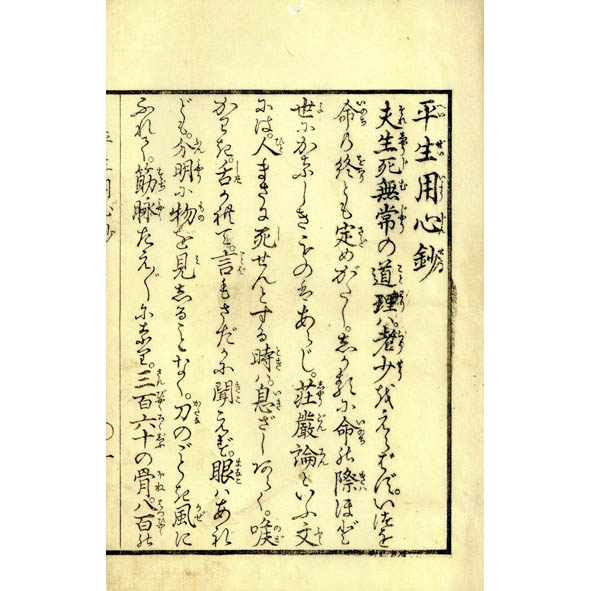 平生用心鈔
夫生死無常の道理ハ。老少をえらばず。いつを
命の終とも定めがたし。しかるに命の際ほど
世にかなしきものはあらじ。荘嚴論といふ文
には。人まさに死せんとする時ハ。息ざしあらく。喉
かわき。舌言もさだかに聞こえず。眼ハあれ
ども。分明に物を見しることなく。刀のごとき風に
ふれて。筋脉たえ〴〵になり。三百六十の骨。八百の